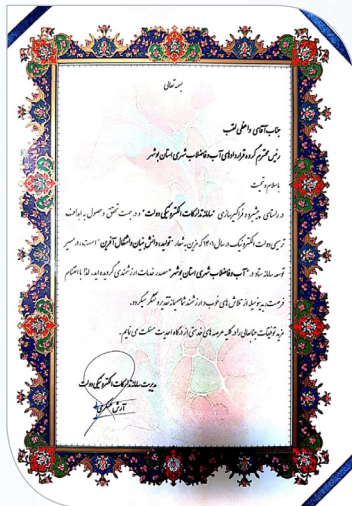 بسمه تعالی
جناب آقای واعظی لقب
رئیس محترم گروه قراردادهای آب و فاضلاب شهری استان بوشهر
با سلام و تحیت
در راستای پیشبرد و فراگیرسازی "سامانه تدارکات الکترونیکی دولت" و در جهت تحقق و حصول به اهداف
ترسیمی دولت الکترونیک در سال ۱۴۰۱ که مزین به شعار "تولید؛ دانش بنیان و اشتغال آفرین" است، در مسیر
توسعه سامانه ستاد در "آب و فاضلاب شهری استان بوشهر" مصدر خدمات ارزشمندی گردیده اید. لذا با اغتنام
فرصت بدینوسیله از تلاش های خوب و ارزشمند شما صمیمانه تقدیر و تشکر میگردد.
مزید توفیقات جنابعالی را در کلیه عرصه های خدمتی از درگاه احدیت مسئلت می نمایم.
مدیریت سامانه تدارکات الکترونیکی دولت
آرش عسکری